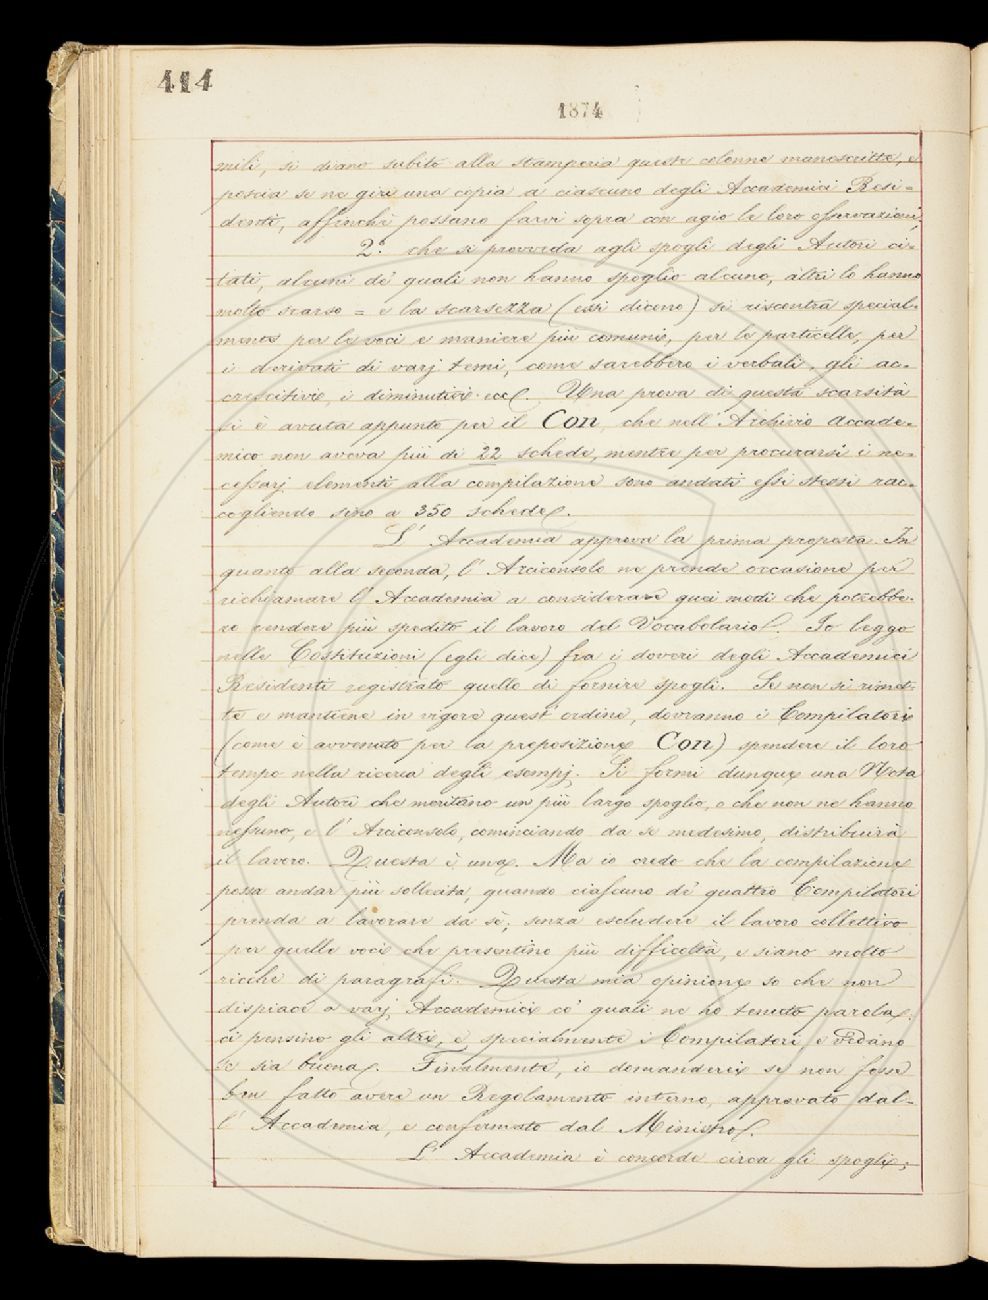 414
1874
mili, si diano subito alla stamperia queste colonne manoscritte, e
poscia se ne giri una copia a ciascuno degli Accademici Resi=
denti, affinchè possano farvi sopra con agio le loro osservazioni,
2.° che si provveda agli spogli degli Autori ci=
tati, alcuni de' quali non hanno spoglio alcuno, altri lo hanno
molto scarso = e la scarsezza (essi dicono) si riscontra special=
mente per le voci e maniere più comuni, per le particelle, per
i derivati di varj temi, come sarebbero i verbali, gli ac=
crescitivi, i diminutivi ecc. Una prova di questa scarsità
si è avuta appunto per il Con, che nell'Archivio accade=
mico non aveva più di 22 schede, mentre per procurarsi i ne=
cessarj elementi alla compilazione sono andati essi stessi rac=
cogliendo sino a 350 schede.
L'Accademia approva la prima proposta. In
quanto alla seconda, l'Arciconsolo ne prende occasione per
richiamare l'Accademia a considerare quei modi che potrebbe=
ro rendere più spedito il lavoro del Vocabolario. Io leggo
nelle Costituzioni (egli dice) fra i doveri degli Accademici
Residenti registrato quello di fornire spogli. Se non si rimet=
te e mantiene in vigore quest'ordine, dovranno i Compilatori
(come è avvenuto per la preposizione Con) spendere il loro
tempo nella ricerca degli esempj. Si formi dunque una Nota
degli Autori che meritano un più largo spoglio, o che non ne hanno
nessuno, e l'Arciconsolo, cominciando da se medesimo, distribuirà
il lavoro. Questa è una. Ma io credo che la compilazione
possa andar più sollecita, quando ciascuno de' quattro Compilatori
prenda a lavorare da sè; senza escludere il lavoro collettivo
per quelle voci che presentino più difficoltà, e siano molto
ricche di paragrafi. Questa mia opinione so che non
dispiace a varj Accademici co' quali ne ho tenuto parola:
ci pensino gli altri, e specialmente i Compilatori, e vedano
se sia buona. Finalmente, io domanderei se non fosse
ben fatto avere un Regolamento interno, approvato dal=
l'Accademia, e confermato dal Ministro.
L'Accademia è concorde circa gli spogli;